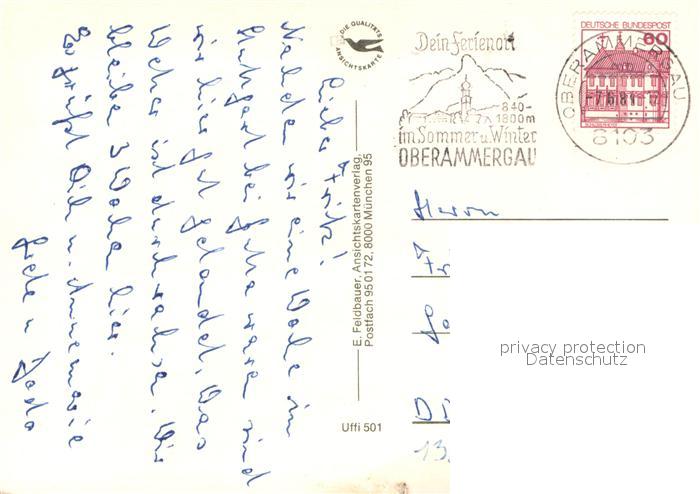 Lieber Fritz!
Nachdem wir eine Woche in
Stuttgart bei Jutta waren sind
wir hier gut gelandet. Das
Wetter ist durchwachsen. Wir
bleiben 3 Wochen hier.
Es grüßt Dich u. Annemarie
DIE QUALITÄTS
ANSICHTSKARTE
E. Feldbauer, Ansichtskartenverlag,
Postfach 95 01 72, 8000 München 95
Uffi 501
Dein Ferienort
840-
1800m
im Sommer u. Winter
OBERAMMERGAU
DEUTSCHE BUNDESPOST
60
OBERAMMERGAU
8103
Herrn
13.
privacy protection
Datenschutz